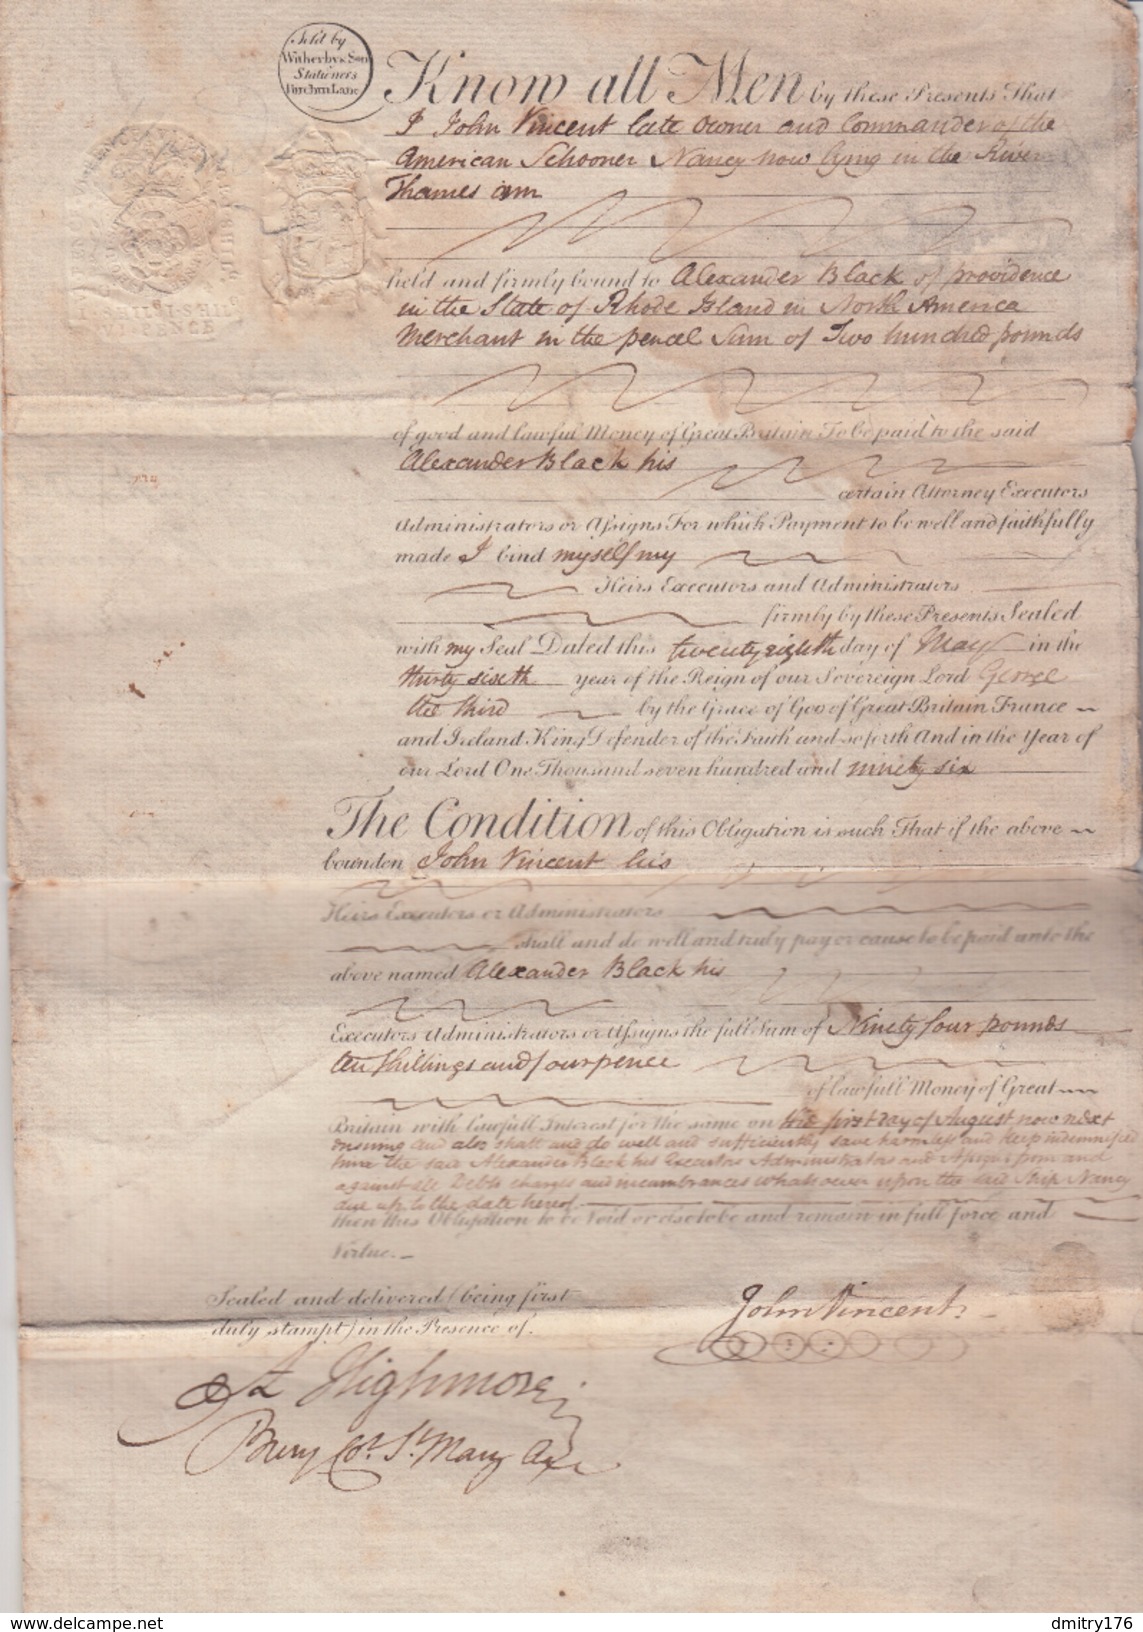 Sold by
Witherby & Son
Stationers
Birchin Lane
Know all Men by these Presents That
I John Vincent late owner and Commander of the
American Schooner Nancy now lying in the River
Thames am
held and firmly bound to Alexander Black of providence
in the State of Rhode Island in North America
Merchant in the penal Sum of Two hundred pounds
of good and lawful Money of Great Britain To be paid to the said
Alexander Black his
certain Attorney Executors
Administrators or Assigns For which Payment to be well and faithfully
made I bind myself my
Heirs Executors and Administrators
firmly by these Presents Sealed
with my Seal Dated this twenty eighth day of May in the
thirty sixth year of the Reign of our Sovereign Lord George
the third by the Grace of God of Great Britain France
and Ireland King Defender of the Faith and so forth And in the Year of
our Lord One Thousand seven hundred and ninety six
The Condition of this Obligation is such That if the above
bounden John Vincent his
Heirs Executors or Administrators
shall and do well and truly pay or cause to be paid unto the
above named Alexander Black his
Executors Administrators or Assigns the full Sum of Ninety four pounds
ten shillings and fourpence
of lawfull Money of Great
Britain with lawfull Interest for the same on the first day of August now next
ensuing and also shall and do well and sufficiently save harmless and keep indemnified
him the said Alexander Black his Executors Administrators and Assigns from and
against all Debts charges and incumbrances whatsoever upon the said Ship Nancy
due up to the date hereof
then this Obligation to be Void or else to be and remain in full force and
Virtue.
Sealed and delivered (being first
duly stampt) in the Presence of.
John Vincent
A Highmore
Bury Ct. St. Mary Axe
delcampe.net
dmitry176